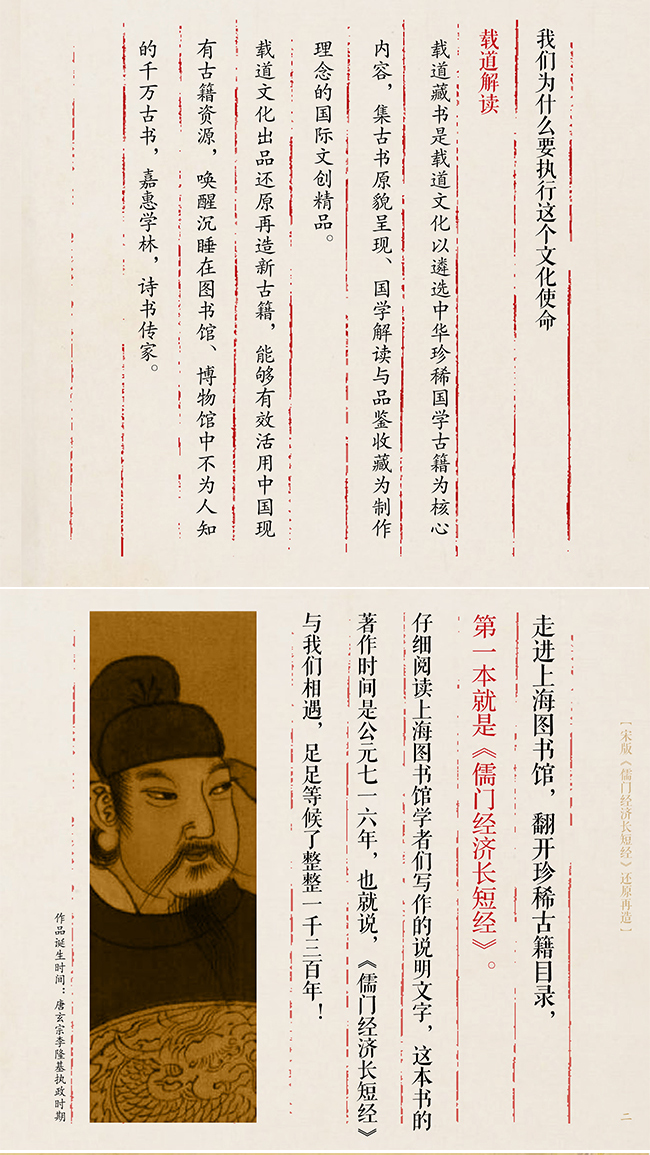 我们为什么要执行这个文化使命
载道解读
载道藏书是载道文化以遴选中华珍稀国学古籍为核心
内容，集古书原貌呈现、国学解读与品鉴收藏为制作
理念的国际文创精品。
载道文化出品还原再造新古籍，能够有效活用中国现
有古籍资源，唤醒沉睡在图书馆、博物馆中不为人知
的千万古书，嘉惠学林，诗书传家。
[宋版《儒门经济长短经》还原再造]
二
走进上海图书馆，翻开珍稀古籍目录，
第一本就是《儒门经济长短经》。
仔细阅读上海图书馆学者们写作的说明文字，这本书的
著作时间是公元七一六年，也就说，《儒门经济长短经》
与我们相遇，足足等候了整整一千三百年！
作品诞生时间：唐玄宗李隆基执政时期